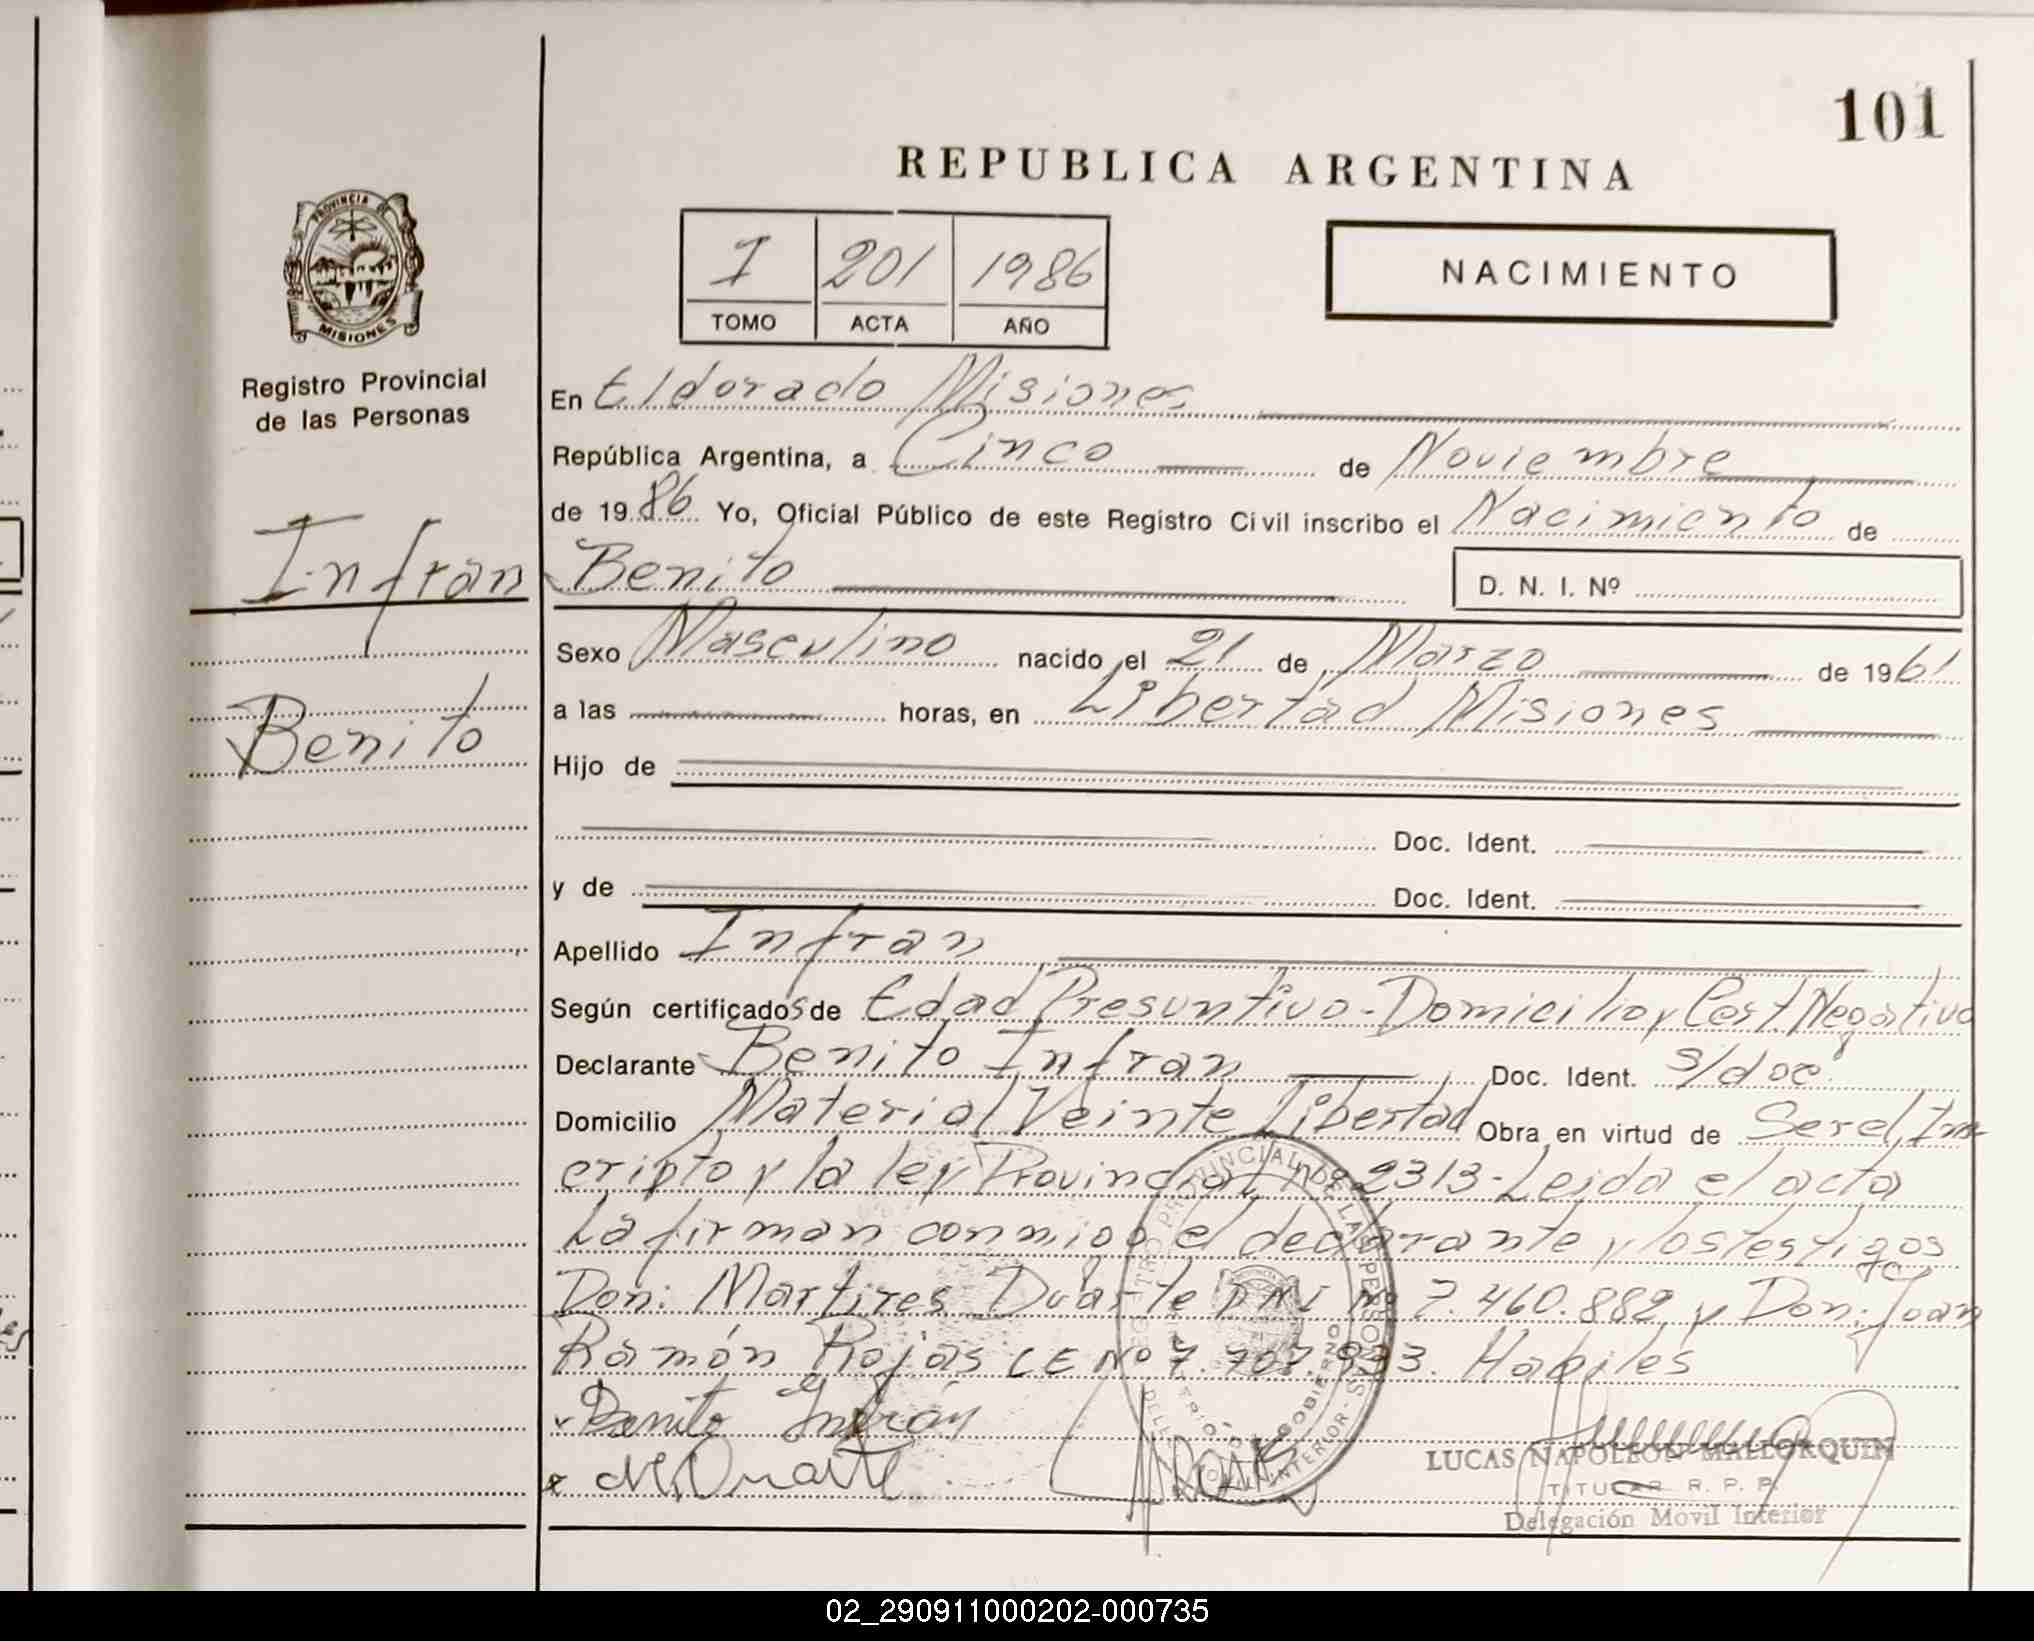 101
REPUBLICA ARGENTINA
I 201 1986
TOMO ACTA AÑO
NACIMIENTO
PROVINCIA DE
MISIONES
Registro Provincial
de las Personas
Infran
Benito
En Eldorado Misiones
República Argentina, a Cinco de Noviembre
de 1986 Yo, Oficial Público de este Registro Civil inscribo el Nacimiento de
Benito D. N. I. Nº
Sexo Masculino nacido el 21 de Marzo de 1961
a las horas, en Libertad Misiones
Hijo de
Doc. Ident.
y de Doc. Ident.
Apellido Infran
Según certificados de Edad Presuntiva-Domicilio y Cert. Negativo
Declarante Benito Infran Doc. Ident. s/doc.
Domicilio Material Veinte Libertad Obra en virtud de Ser el Ins-
cripto y la ley Provincial Nº 2313-Leida el acta
La firman conmigo el declarante y los testigos
Don: Martires Duarte DNI Nº 7.460.882 y Don: Juan
Ramón Rojas LE Nº 7.707.933. Habiles
x Benito Infrán
x M. Duarte
LUCAS NAPOLEON MALLORQUIN
TITULAR R. P. P.
Delegación Movil Interior
02_290911000202-000735